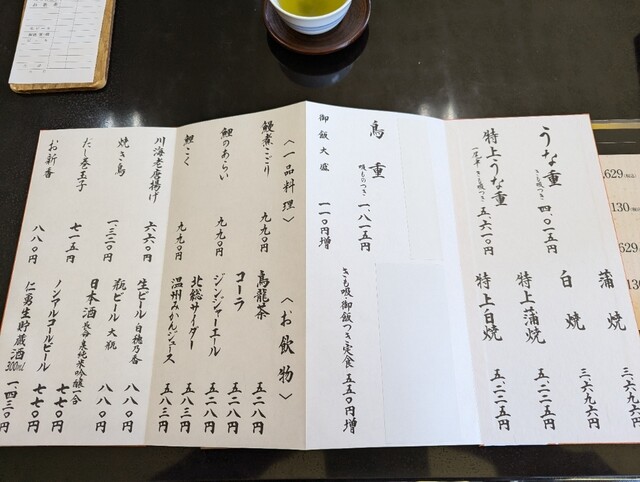 うな重
きも吸つき
四、〇一五円
特上うな重
一匹半 きも吸つき
五、六一〇円
蒲焼
三、六九六円
白焼
三、六九六円
特上蒲焼
五、二二五円
特上白焼
五、二二五円
鳥重
吸ものつき
一、八一五円
御飯大盛
一一〇円増
きも吸・御飯つき定食
五五〇円増
〈一品料理〉
鰻煮こごり
九九〇円
鯉のあらい
九九〇円
鯉こく
九九〇円
川海老唐揚げ
六六〇円
焼き鳥
一、三二〇円
だし巻玉子
七一五円
お新香
八八〇円
〈お飲物〉
烏龍茶
五二八円
コーラ
五二八円
ジンジャーエール
五二八円
北総サイダー
五八三円
温州みかんジュース
五八三円
生ビール 白穂乃香
八八〇円
瓶ビール 大瓶
八八〇円
日本酒
一合
ノンアルコールビール
七七〇円
仁勇生貯蔵酒
300mL
一、四三〇円
,629(税込)
,130
,629
,130